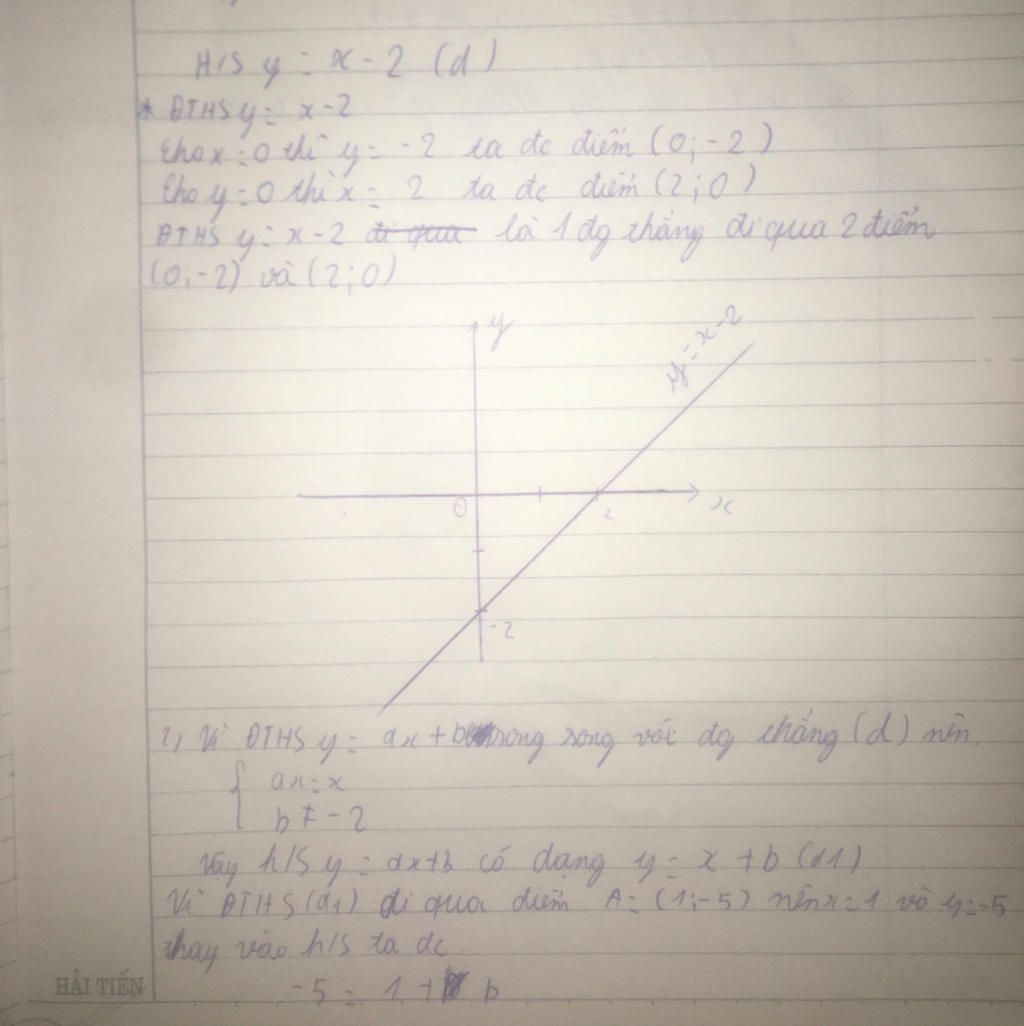 H/S y = x - 2 (d)
* ĐTHS y = x - 2
Cho x = 0 thì y = -2 ta đc điểm (0; -2)
Cho y = 0 thì x = 2 ta đc điểm (2; 0)
ĐTHS y = x - 2 đi qua là 1 đg thẳng đi qua 2 điểm
(0; -2) và (2; 0)
y
y = x - 2
O
2
x
-2
2, Vì ĐTHS y = ax + b song song với đg thẳng (d) nên
{ ax = x
b ≠ -2
Vậy h/s y = ax + b có dạng y = x + b (d1)
Vì ĐTHS (d1) đi qua điểm A = (1; -5) nên x = 1 và y = -5
thay vào h/s ta đc
-5 = 1 + b
HẢI TIẾN